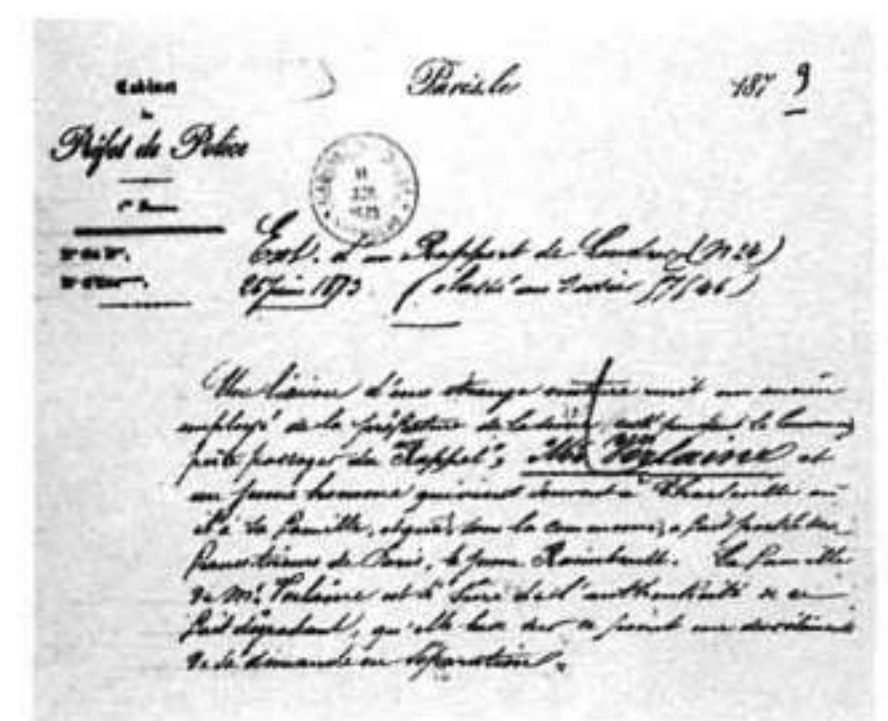 Cabinet
du
Préfet de Police
Paris, le 187 3
Ext. d'un Rapport de Londres (N 24)
26 juin 1873. (classé au dossier
Une liaison d'une étrange nature unit un ancien
employé de la préfecture de la Seine, resté pendant la Commune,
poète passager du Rappel, Mr Verlaine et
un jeune homme qui vient souvent à Charleville où
il a sa famille, et qui, sous la commune, a fait partie des
francs tireurs de Paris, le jeune Raimbault. La famille
de Mr. Verlaine est si sûre de l'authenticité de ce
fait dégradant, qu'elle base sur ce point
de sa demande en séparation.